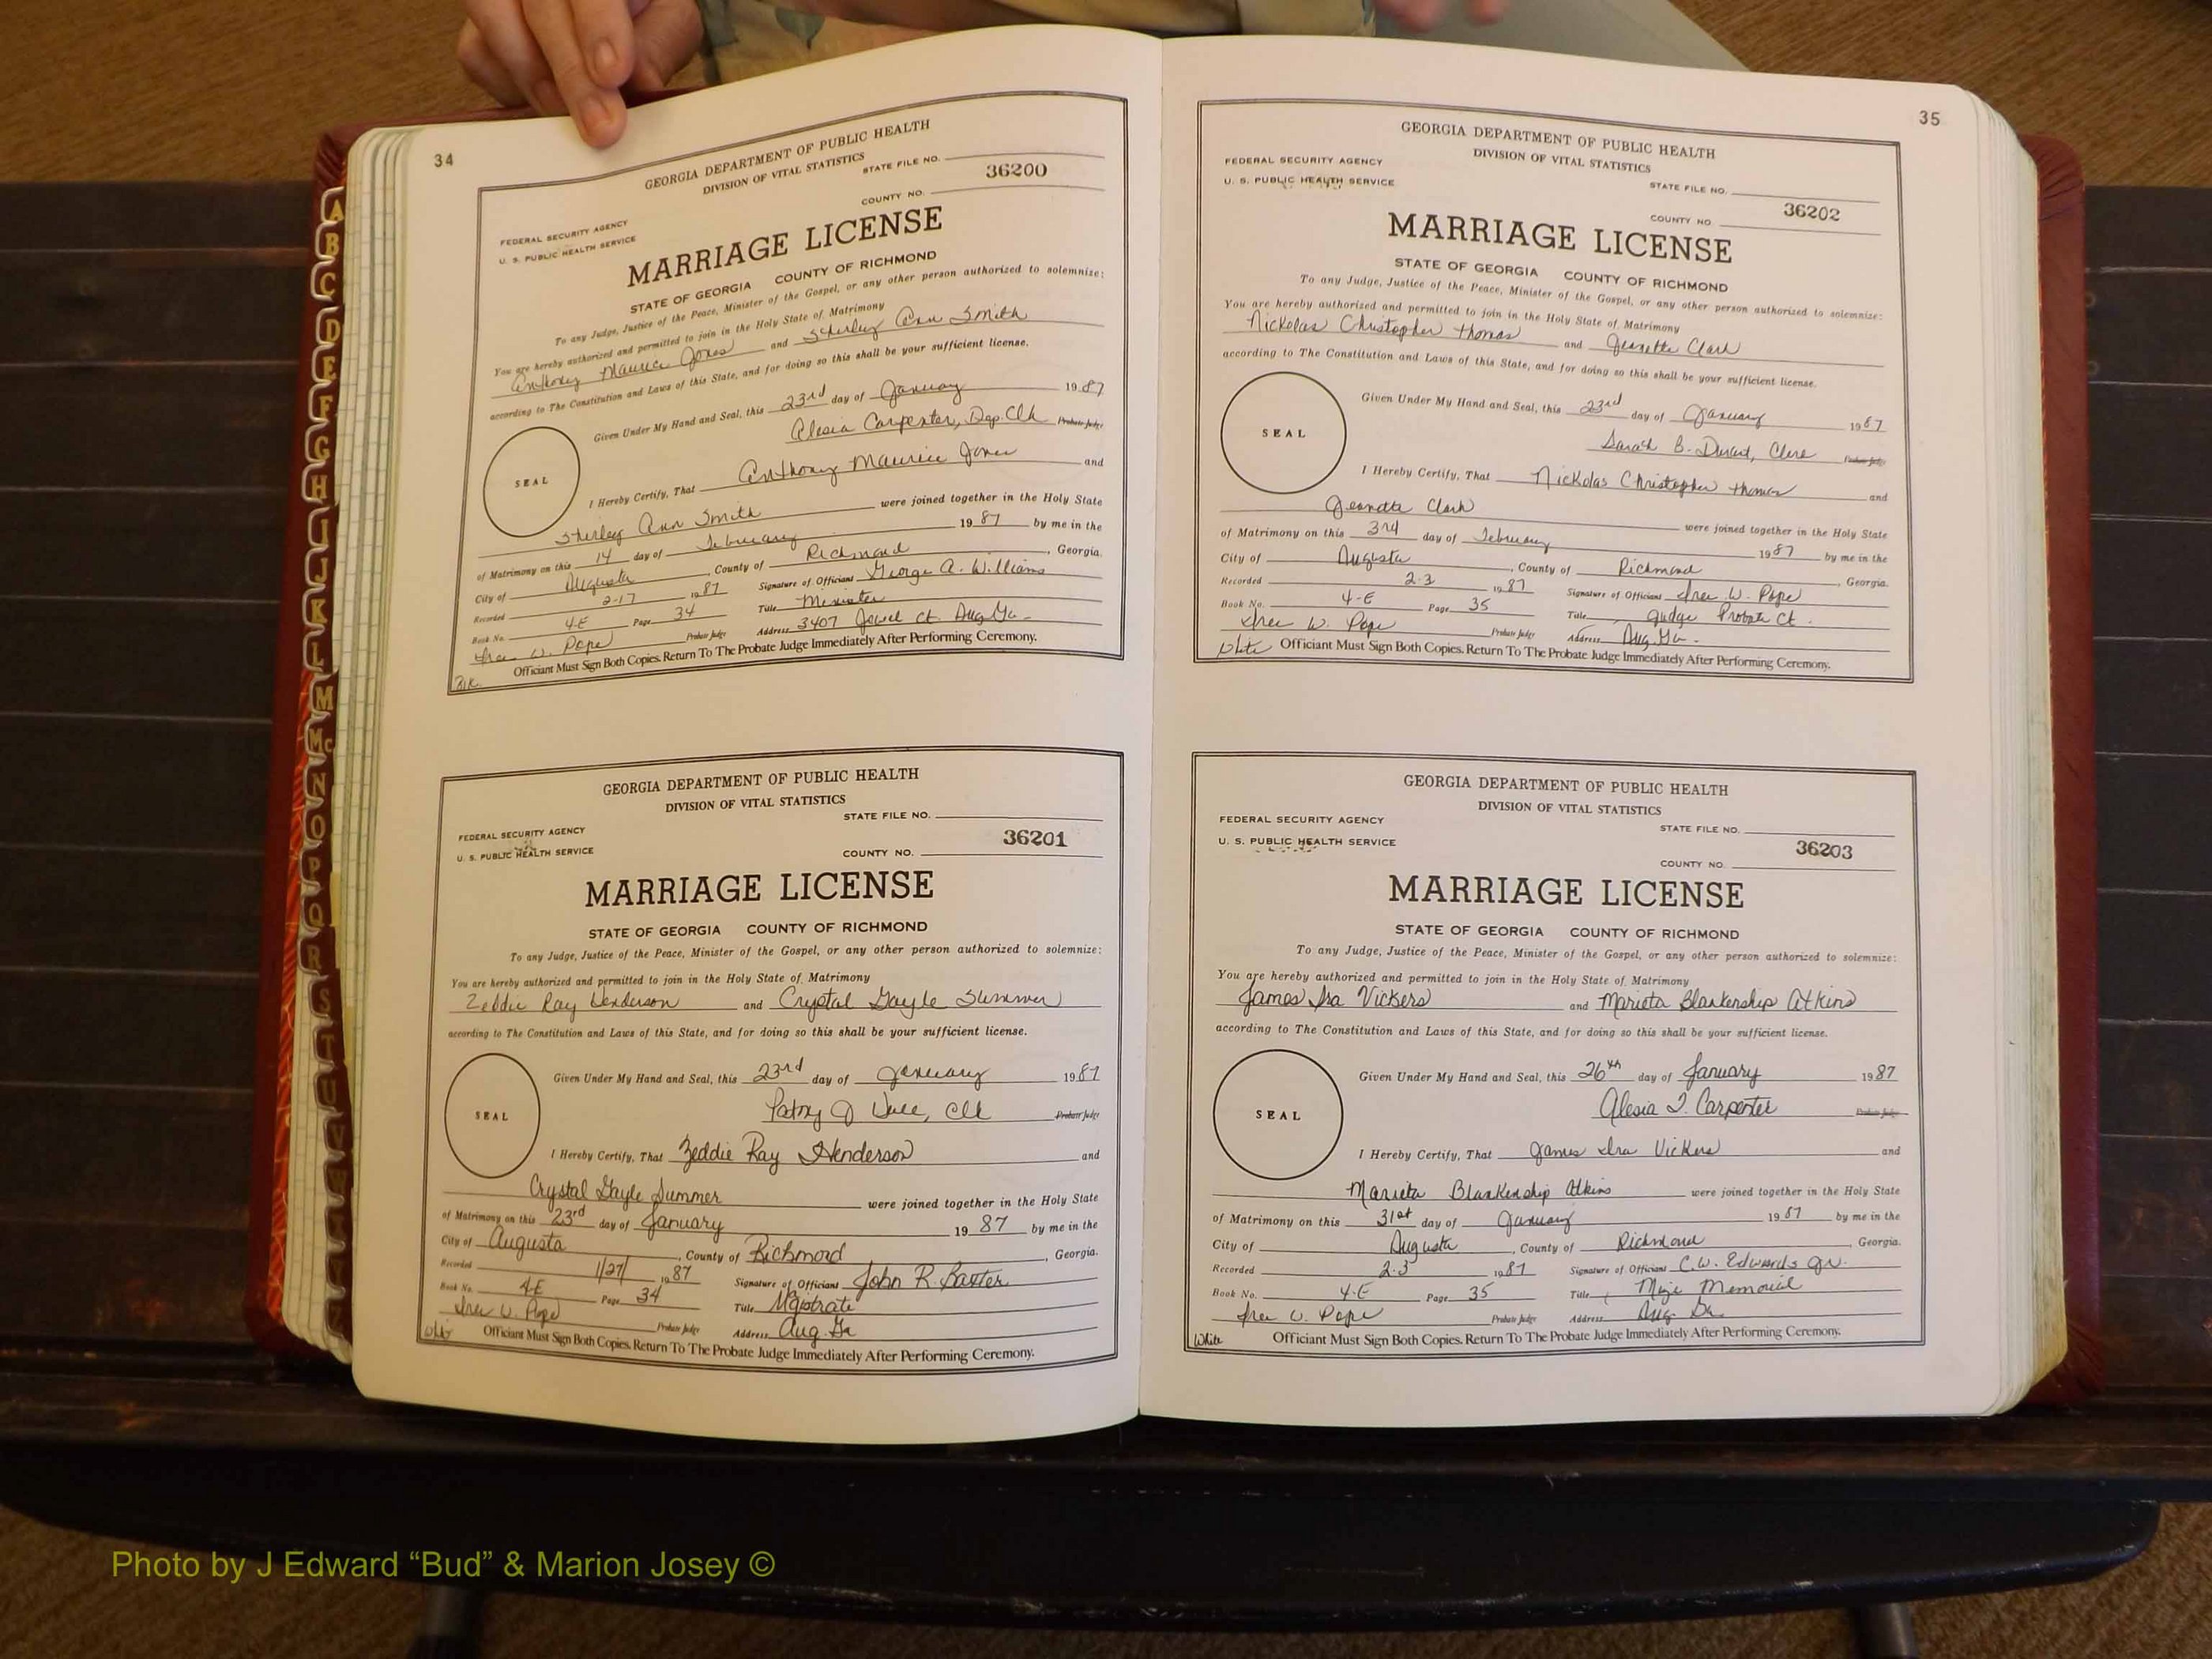 34
GEORGIA DEPARTMENT OF PUBLIC HEALTH
DIVISION OF VITAL STATISTICS
STATE FILE NO.
36200
COUNTY NO.
FEDERAL SECURITY AGENCY
U. S. PUBLIC HEALTH SERVICE
MARRIAGE LICENSE
STATE OF GEORGIA COUNTY OF RICHMOND
To any Judge, Justice of the Peace, Minister of the Gospel, or any other person authorized to solemnize:
You are hereby authorized and permitted to join in the Holy State of Matrimony
Anthony Maurice Jones and Shirley Ann Smith
according to The Constitution and Laws of this State, and for doing so this shall be your sufficient license.
Given Under My Hand and Seal, this 23rd day of January 1987
Alesia Carpenter, Dep. Clk Probate Judge
SEAL
I Hereby Certify, That Anthony Maurice Jones and
Shirley Ann Smith were joined together in the Holy State
of Matrimony on this 14 day of February 1987 by me in the
City of Augusta, County of Richmond, Georgia.
Recorded 2-17 1987 Signature of Officiant George A. Williams
Book No. 4-E Page 34 Title Minister
W. Pope Probate Judge Address 3407 Jewel Ct. Aug Ga.
Blk. Officiant Must Sign Both Copies. Return To The Probate Judge Immediately After Performing Ceremony.
GEORGIA DEPARTMENT OF PUBLIC HEALTH
DIVISION OF VITAL STATISTICS
STATE FILE NO.
FEDERAL SECURITY AGENCY
36201
U. S. PUBLIC HEALTH SERVICE
COUNTY NO.
MARRIAGE LICENSE
STATE OF GEORGIA COUNTY OF RICHMOND
To any Judge, Justice of the Peace, Minister of the Gospel, or any other person authorized to solemnize:
You are hereby authorized and permitted to join in the Holy State of Matrimony
Zeddie Ray Henderson and Crystal Gayle Summer
according to The Constitution and Laws of this State, and for doing so this shall be your sufficient license.
Given Under My Hand and Seal, this 23rd day of January 1987
Clk Probate Judge
SEAL
I Hereby Certify, That Zeddie Ray Henderson and
Crystal Gayle Summer were joined together in the Holy State
of Matrimony on this 23rd day of January 1987 by me in the
City of Augusta, County of Richmond, Georgia.
Recorded 1/27/ 1987 Signature of Officiant John R. Baxter
Book No. 4E Page 34 Title Magistrate
W. Pope Probate Judge Address Aug. Ga
Officiant Must Sign Both Copies. Return To The Probate Judge Immediately After Performing Ceremony.
35
GEORGIA DEPARTMENT OF PUBLIC HEALTH
DIVISION OF VITAL STATISTICS
FEDERAL SECURITY AGENCY
U. S. PUBLIC HEALTH SERVICE
STATE FILE NO.
36202
COUNTY NO.
MARRIAGE LICENSE
STATE OF GEORGIA COUNTY OF RICHMOND
To any Judge, Justice of the Peace, Minister of the Gospel, or any other person authorized to solemnize:
You are hereby authorized and permitted to join in the Holy State of Matrimony
Nickolas Christopher Thomas and Jeanette Clark
according to The Constitution and Laws of this State, and for doing so this shall be your sufficient license.
Given Under My Hand and Seal, this 23rd day of January 1987
Sarah B. Probate Judge
SEAL
I Hereby Certify, That Nickolas Christopher Thomas and
Jeanette Clark were joined together in the Holy State
of Matrimony on this 3rd day of February 1987 by me in the
City of Augusta, County of Richmond, Georgia.
Recorded 2-3 1987 Signature of Officiant W. Pope
Book No. 4-E Page 35 Title Judge Probate Ct.
W. Pope Probate Judge Address Aug. Ga.
White Officiant Must Sign Both Copies. Return To The Probate Judge Immediately After Performing Ceremony.
GEORGIA DEPARTMENT OF PUBLIC HEALTH
DIVISION OF VITAL STATISTICS
FEDERAL SECURITY AGENCY
STATE FILE NO.
U. S. PUBLIC HEALTH SERVICE
36203
COUNTY NO.
MARRIAGE LICENSE
STATE OF GEORGIA COUNTY OF RICHMOND
To any Judge, Justice of the Peace, Minister of the Gospel, or any other person authorized to solemnize:
You are hereby authorized and permitted to join in the Holy State of Matrimony
James Ira Vickers and Marieta Blankenship Atkins
according to The Constitution and Laws of this State, and for doing so this shall be your sufficient license.
Given Under My Hand and Seal, this 26th day of January 1987
Alesia T. Carpenter Probate Judge
SEAL
I Hereby Certify, That James Ira Vickers and
Marieta Blankenship Atkins were joined together in the Holy State
of Matrimony on this 31st day of January 1987 by me in the
City of Augusta, County of Richmond, Georgia.
Recorded 2-3 1987 Signature of Officiant C.W. Edwards Jr.
Book No. 4-E Page 35 Title Memorial
W. Pope Probate Judge Address Aug. Ga.
White Officiant Must Sign Both Copies. Return To The Probate Judge Immediately After Performing Ceremony.
A
B
C
D
E
F
G
H
I
J
K
L
M
Mc
N
O
P
Q
R
S
T
U
V
W
Photo by J Edward “Bud” & Marion Josey ©